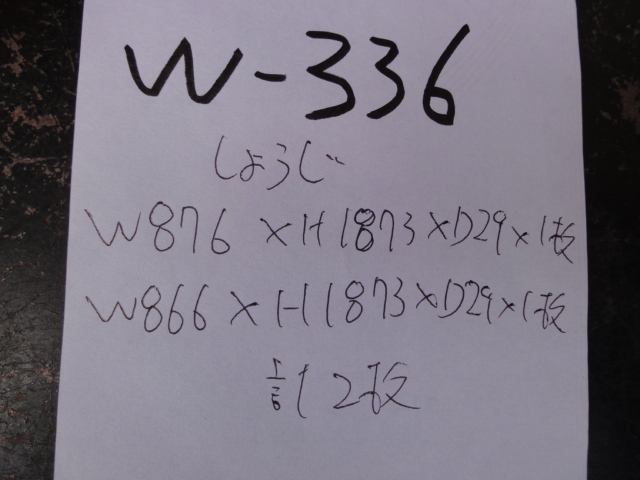 W-336
しょうじ
W876×H1873×D29×1枚
W866×H1873×D29×1枚
計2枚